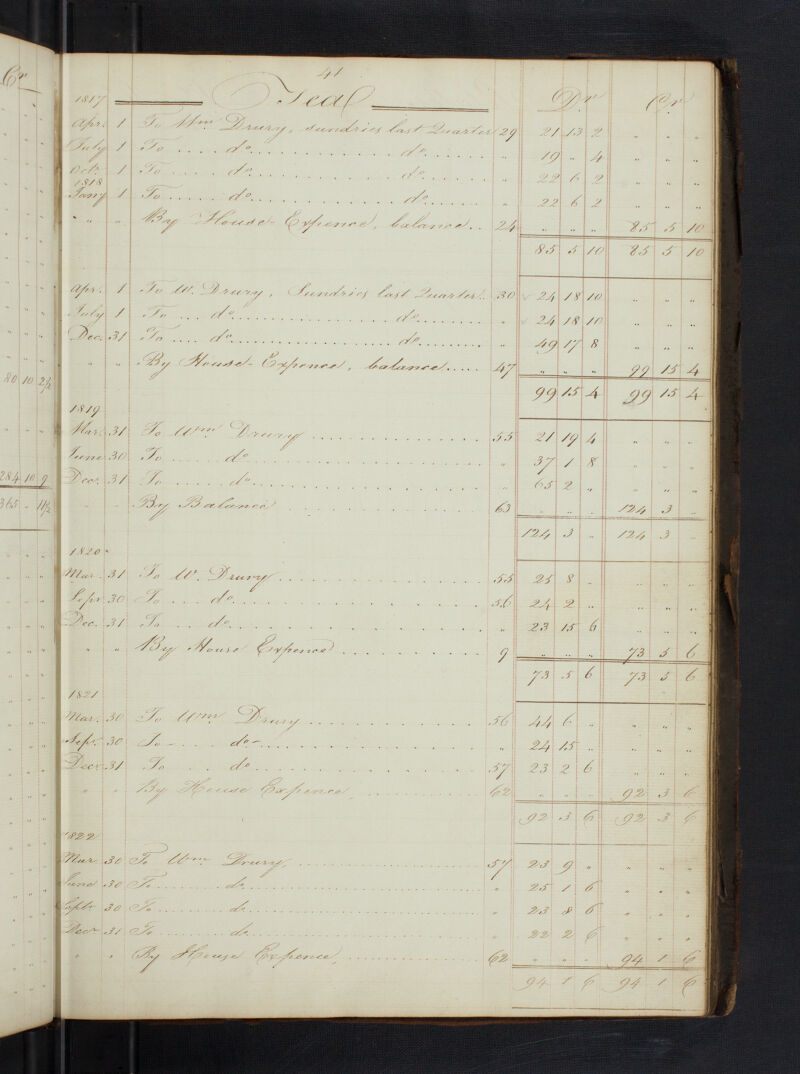 Cr
80 10 2½
284 10 9
365 " 11½
41
1817 Teas Dr Cr
Apr. 1 To Wm Drury, sundries last Quarter 29 21 13 2 " " "
July 1 To .... do .... do .... " 19 " 4 " " "
Octr 1 To .... do .... do .... " 22 6 2 " " "
1818
Jany 1 To .... do .... do .... " 22 6 2 " " "
" " By House-Expence, balance .. 24 " " " 85 5 10
85 5 10 85 5 10
Apr. 1 To W. Drury, Sundries last Quarter .. 30 24 18 10 " " "
July 1 To .... do .... do .... " 24 18 10 " " "
Dec. 31 To .... do .... do .... " 49 17 8 " " "
" " By House-Expence, balance .... 47 " " " 99 15 4
99 15 4 99 15 4
1819
Mar. 31 To Wm Drury .... 55 21 19 4 " " "
June 30 To .... do .... " 37 1 8 " " "
Dec. 31 To .... do .... " 65 2 " " " "
" " By Balance .... 63 " " " 124 3 "
124 3 " 124 3 "
1820
Mar. 31 To W. Drury .... 55 25 8 " " " "
Sepr 30 To .... do .... 56 24 2 " " " "
Dec. 31 To .... do .... " 23 15 6 " " "
" " By House Expence .... 9 " " " 73 5 6
73 5 6 73 5 6
1821
Mar. 30 To Wm Drury .... 56 44 6 " " " "
Sepr. 30 To .... do .... " 24 15 " " " "
Decr 31 To .... do .... 57 23 2 6 " " "
" " By House Expence .... 62 " " " 92 3 6
92 3 6 92 3 6
1822
Mar 30 To Wm Drury .... 57 23 9 " " " "
June 30 To .... do .... " 25 1 6 " " "
Septr 30 To .... do .... " 23 8 6 " " "
Decr 31 To .... do .... " 22 2 6 " " "
" " By House Expence, .... 62 " " " 94 1 6
94 1 6 94 1 6